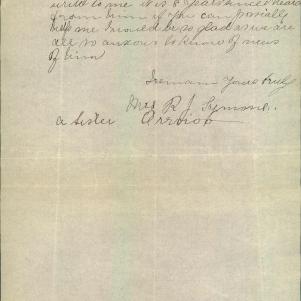 write to me it is 8 years since I heard
from him if you can possibly
help me I would be so glad as we are
all so anxous to know of news
of him
I remain Yours truly
Mrs R. J. Symons.
a sister Anxious